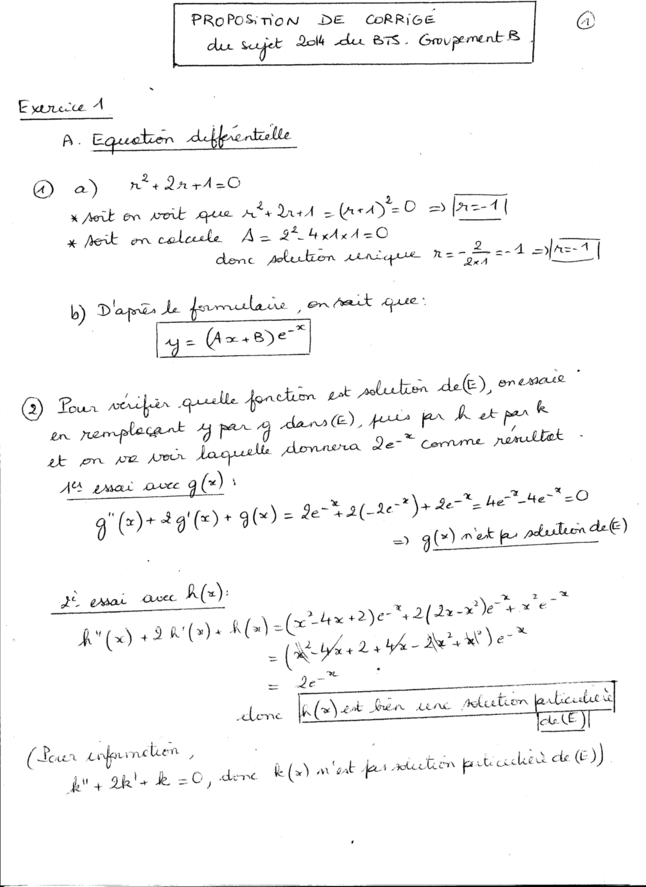 PROPOSITION DE CORRIGÉ
①
du sujet 2014 du BTS. Groupement B.
Exercice 1
A. Equation différentielle
① a) r² + 2r + 1 = 0
* soit on voit que r² + 2r + 1 = (r + 1)² = 0 => r = -1
* soit on calcule Δ = 2² - 4×1×1 = 0
donc solution unique r = -2/(2×1) = -1 => r = -1
b) D'après le formulaire, on sait que :
y = (Ax + B) e^{-x}
② Pour vérifier quelle fonction est solution de (E), on essaie
en remplaçant y par g dans (E), puis par h et par k
et on va voir laquelle donnera 2e^{-x} comme résultat.
1er essai avec g(x) :
g''(x) + 2g'(x) + g(x) = 2e^{-x} + 2(-2e^{-x}) + 2e^{-x} = 4e^{-x} - 4e^{-x} = 0
=> g(x) n'est pas solution de (E)
2è essai avec h(x) :
h''(x) + 2h'(x) + h(x) = (x² - 4x + 2) e^{-x} + 2(2x - x²) e^{-x} + x² e^{-x}
= (x² - 4x + 2 + 4x - 2x² + x²) e^{-x}
= 2e^{-x}
donc h(x) est bien une solution particulière
de (E)
(Pour information,
k'' + 2k' + k = 0, donc k(x) n'est pas solution particulière de (E))